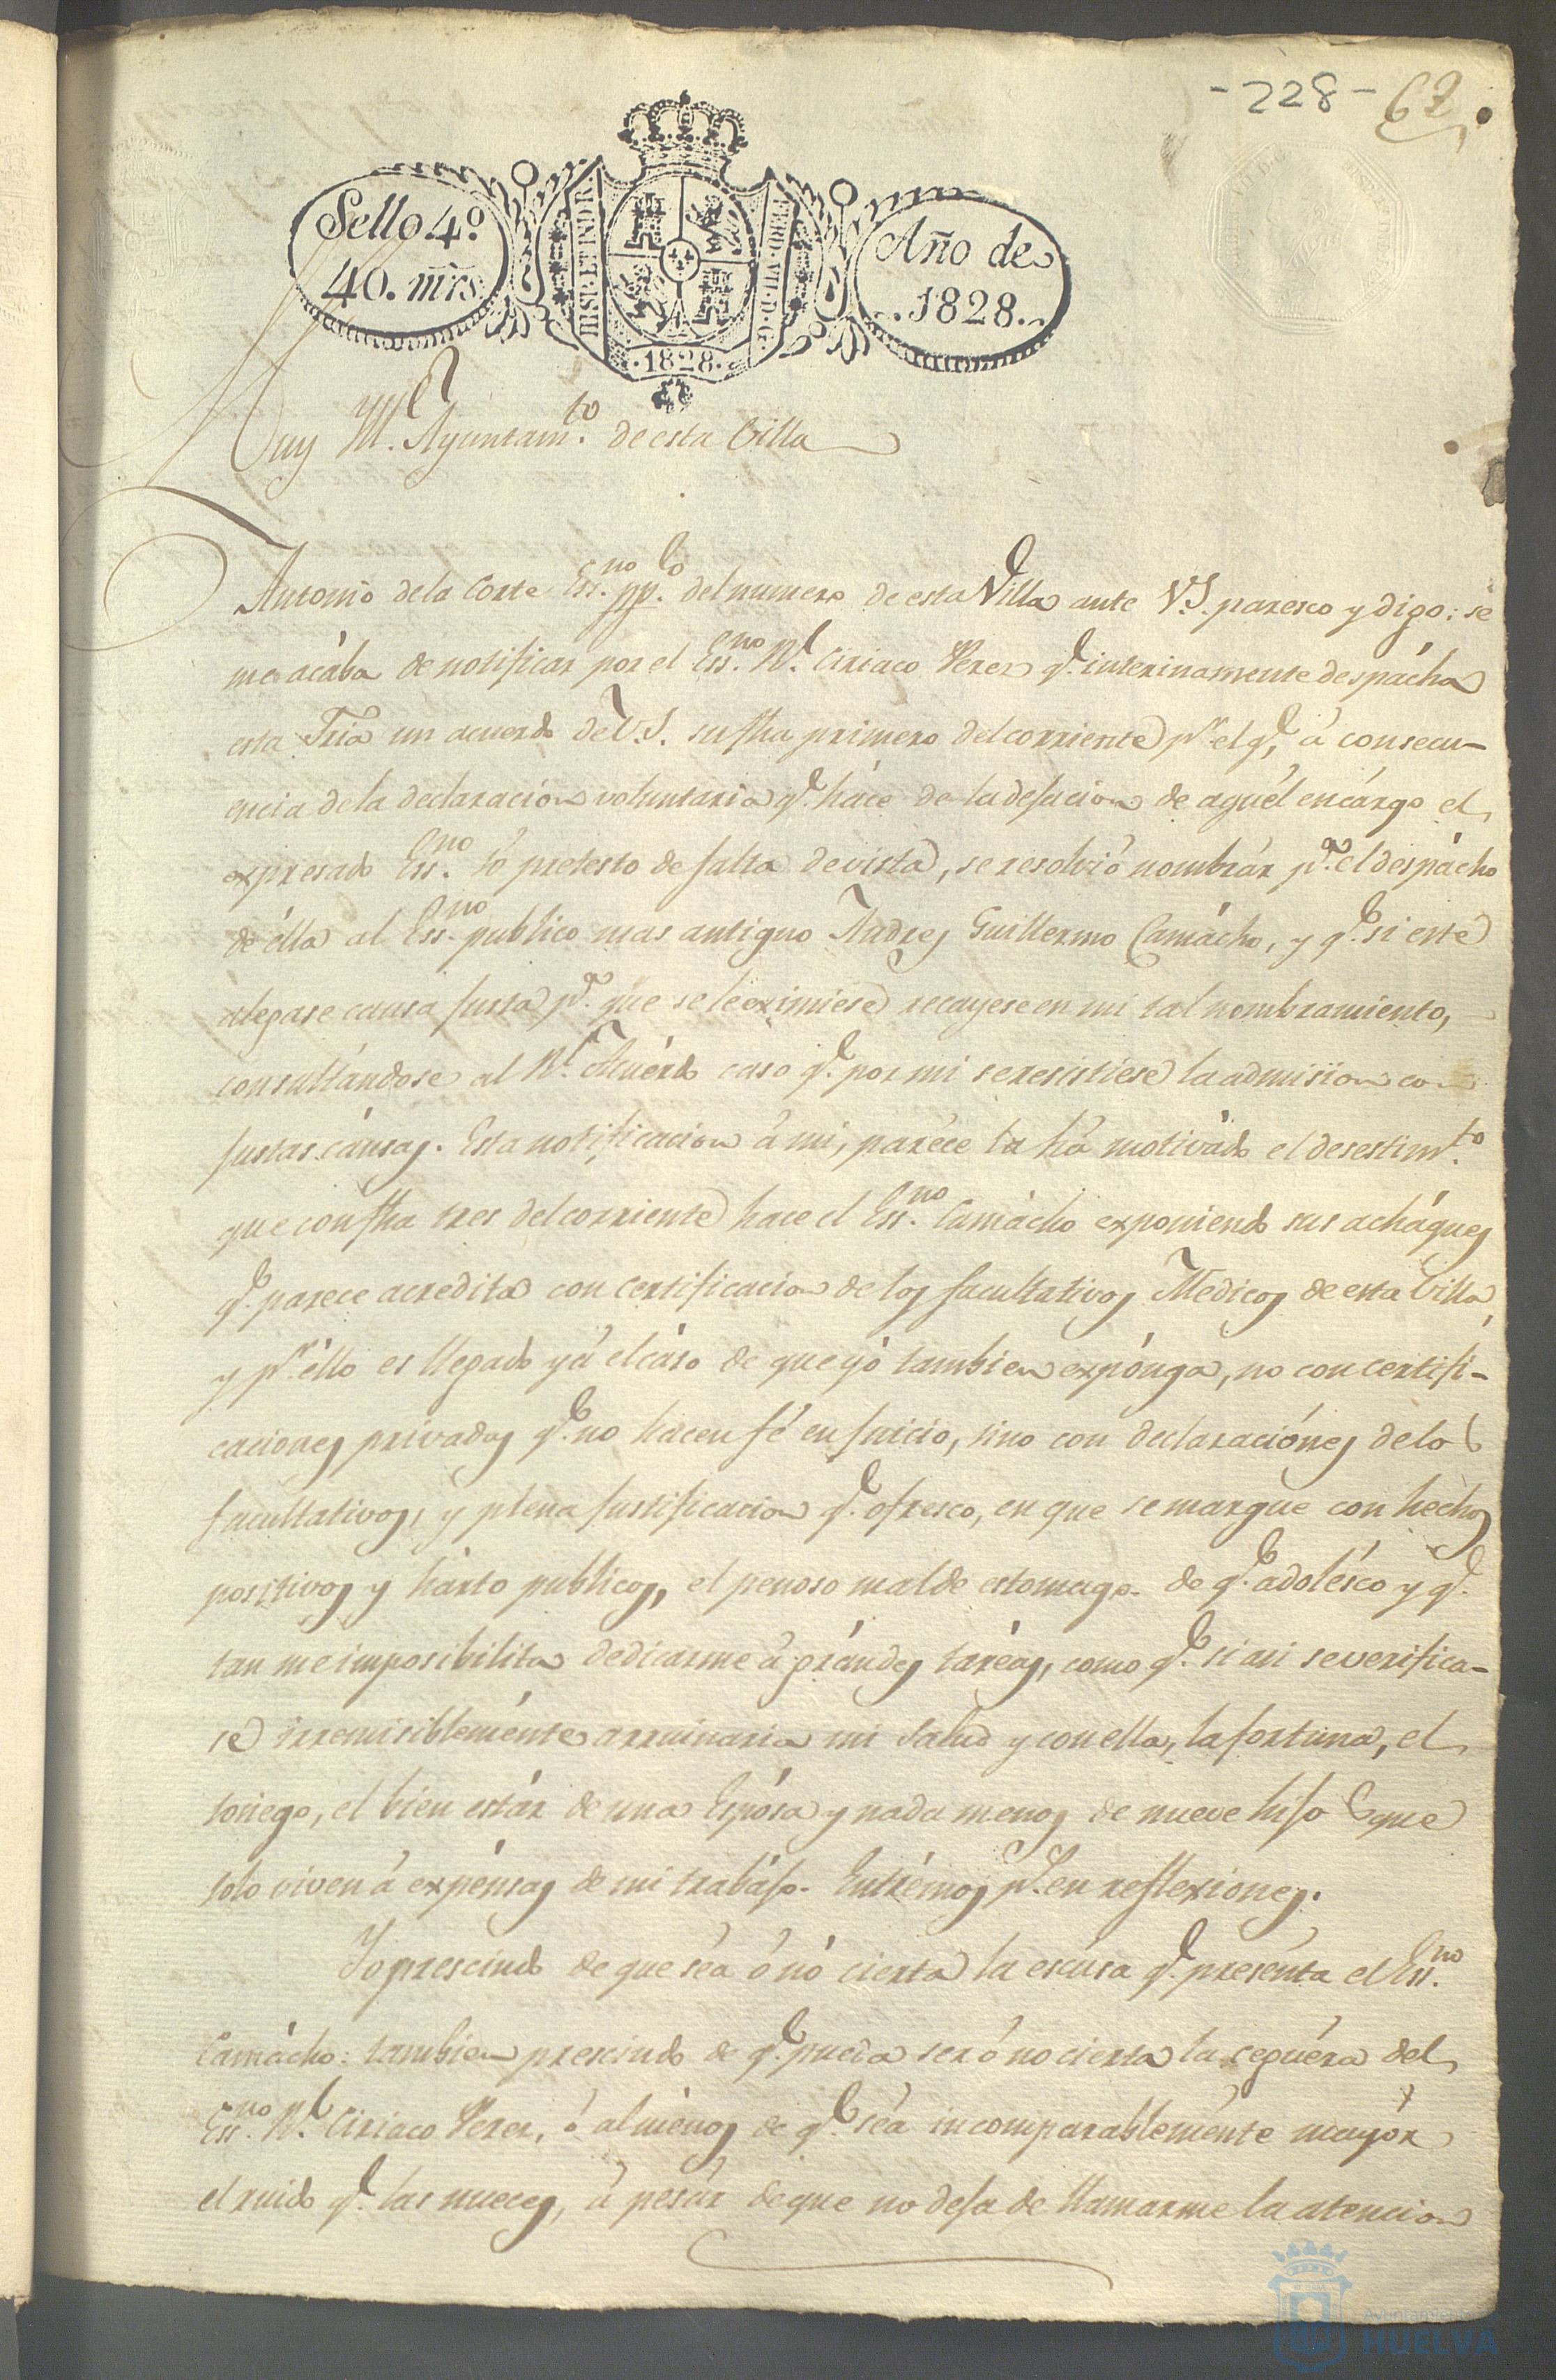 -228- 62
Sello 4.º
40. mrs
HISP. ET IND. R.
FERD. VII. D. G.
.1828.
Año de
.1828.
Muy Y.e Ayuntam.to de esta Villa
Antonio de la Corte Ess.no pp.co del numero de esta Villa ante V.S. paresco y digo: se
me acába de notificar por el Ess.no R.l Ciriaco Perez q.e interinamente despácha
esta Sría un acuerdo de V.S. su fha primero del corriente p.r el q.e, á consecu-
encia de la declaracion voluntaria q.e háce de la dejacion de aquél encárgo el
expresado Ess.no só pretesto de falta de vista, se resolvió nombrár p.a el despácho
de élla al Ess.no publico mas antiguo Andres Guillermo Camácho, y q.e si este
alegase causa justa p.a que se le eximiese recayese en mi tal nombramiento,
consultándose al R.l Acuérdo caso q.e por mi se resistiese la admision con
justas cáusas. Esta notificacion á mi, paréce la há motivádo el desestim.to
que con fha tres del corriente hace el Ess.no Camácho exponiendo sus acháques
q.e parece acredita con certificacion de los facultativos Medicos de esta Villa,
y p.r éllo es llegado yá el cáso de que yó tambien expónga, no con certifi-
caciones privadas q.e no hacen fé en juicio, sino con declaraciónes de los
facultativos, y plena justificacion q.e ofresco, en que se marque con hechos
positivos y hárto publicos, el penoso mal de estomago de q.e adolésco y q.e
tan me imposibilita dedicarme á grándes taréas, como q.e si asi se verifica-
se irremisiblemente arruinaria mi salud y con ella, la fortuna, el
sosiego, el bien estár de una Espósa y nada menos de nueve hijos que
solo viven á expénsas de mi trabájo. Entrémos p.s en reflexiones.
Yo prescindo de que séa ó nó cierta la escúsa q.e presénta el Ess.no
Camácho: tambien prescindo de q.e pueda ser ó no cierta la ceguéra del
Ess.no R.l Ciriaco Perez, ó al ménos de q.e séa incomparableménte mayór
el ruido q.e las nueces, á pesár de que no deja de llamarme la atencion
Ayuntamiento
HUELVA